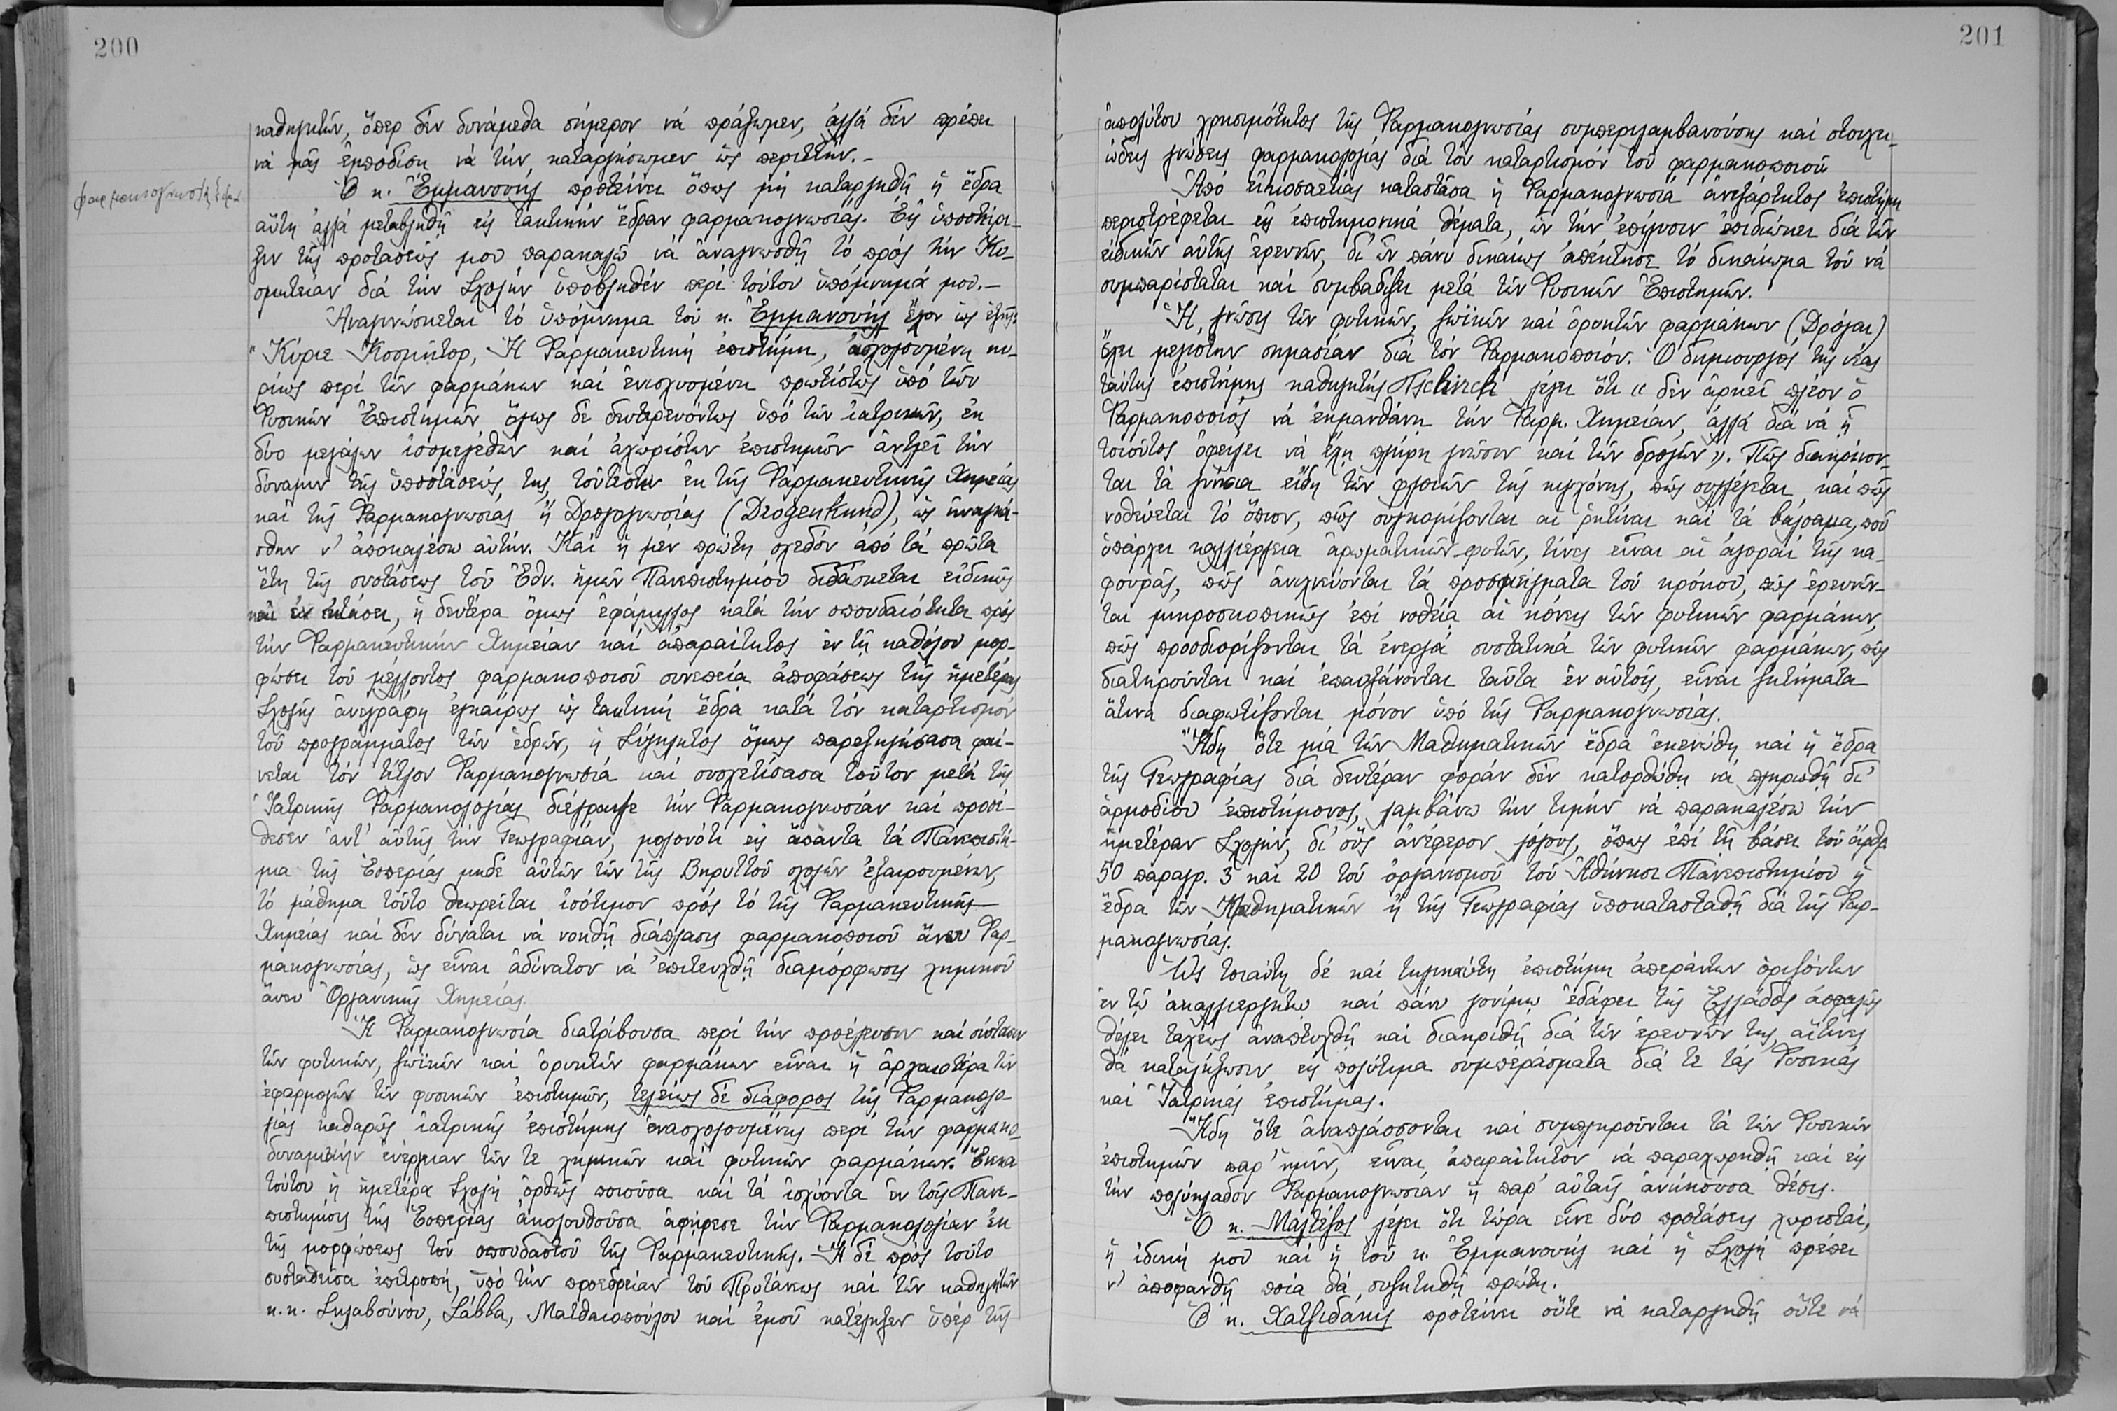 200
καθηγητῶν, ὅπερ δὲν δυνάμεθα σήμερον νὰ πράξωμεν, ἀλλὰ δὲν πρέπει
νὰ μᾶς ἐμποδίσῃ νὰ τὴν καταργήσωμεν ὡς περιττήν.—
Ὁ κ. Ἐμμανουὴλ προτείνει ὅπως μὴ καταργηθῇ ἡ ἕδρα
αὕτη ἀλλὰ μεταβληθῇ εἰς τακτικὴν ἕδραν φαρμακογνωσίας. Εἰς ὑποστήρι-
ξιν τῆς προτάσεώς μου παρακαλῶ νὰ ἀναγνωσθῇ τὸ πρὸς τὴν Κο-
σμητείαν διὰ τὴν Σχολὴν ὑποβληθὲν περὶ τούτου ὑπόμνημά μου.—
Ἀναγινώσκεται τὸ ὑπόμνημα τοῦ κ. Ἐμμανουὴλ ἔχον ὡς ἑξῆς:
"Κύριε Κοσμῆτορ, Ἡ Φαρμακευτικὴ ἐπιστήμη, ἀσχολουμένη κυ-
ρίως περὶ τῶν φαρμάκων καὶ ἐνισχυομένη πρωτίστως ὑπὸ τῶν
Φυσικῶν Ἐπιστημῶν, ὅλως δὲ δευτερευόντως ὑπὸ τῶν ἰατρικῶν, ἐκ
δύο μεγάλων ἰσομεγεθῶν καὶ ἀχωρίστων ἐπιστημῶν ἀντλεῖ τὴν
δύναμιν τῆς ὑποστάσεώς της, τοὐτέστιν ἐκ τῆς Φαρμακευτικῆς Χημείας
καὶ τῆς Φαρμακογνωσίας ἢ Δρογογνωσίας (Drogenkund), ὡς ἠναγκά-
σθην ν' ἀποκαλέσω αὐτήν. Καὶ ἡ μὲν πρώτη σχεδὸν ἀπὸ τὰ πρῶτα
ἔτη τῆς συστάσεως τοῦ Ἐθν. ἡμῶν Πανεπιστημίου διδάσκεται εἰδικῶς
καὶ ἐν ἐκτάσει, ἡ δευτέρα ὅμως ἐφάμιλλος κατὰ τὴν σπουδαιότητα πρὸς
τὴν Φαρμακευτικὴν Χημείαν καὶ ἀπαραίτητος ἐν τῇ καθόλου μορ-
φώσει τοῦ μέλλοντος φαρμακοποιοῦ συνεπείᾳ ἀποφάσεως τῆς ἡμετέρας
Σχολῆς ἀνεγράφη ἐγκαίρως ὡς τακτικὴ ἕδρα κατὰ τὸν καταρτισμὸν
τοῦ προγράμματος τῶν ἑδρῶν, ἡ Σύγκλητος ὅμως παρεξηγήσασα φαί-
νεται τὸν τίτλον Φαρμακογνωσία καὶ συσχετίσασα τοῦτον μετὰ τῆς
Ἰατρικῆς Φαρμακολογίας διέγραψε τὴν Φαρμακογνωσίαν καὶ προσέ-
θεσεν ἀντ' αὐτῆς τὴν Γεωγραφίαν, μολονότι εἰς ἅπαντα τὰ Πανεπιστή-
μια τῆς Ἑσπερίας μηδὲ αὐτῶν τῶν τῆς Βηρυττοῦ σχολῶν ἐξαιρουμένων,
τὸ μάθημα τοῦτο θεωρεῖται ἰσότιμον πρὸς τὸ τῆς Φαρμακευτικῆς
Χημείας καὶ δὲν δύναται νὰ νοηθῇ διάπλασις φαρμακοποιοῦ ἄνευ Φαρ-
μακογνωσίας, ὡς εἶναι ἀδύνατον νὰ ἐπιτευχθῇ διαμόρφωσις χημικοῦ
ἄνευ Ὀργανικῆς Χημείας.
Ἡ Φαρμακογνωσία διατρίβουσα περὶ τὴν προέλευσιν καὶ σύστασιν
τῶν φυτικῶν, ζωϊκῶν καὶ ὀρυκτῶν φαρμάκων εἶναι ἡ ἀρχαιοτέρα τῶν
ἐφαρμογῶν τῶν φυσικῶν ἐπιστημῶν, τελείως δὲ διάφορος τῆς Φαρμακολο-
γίας καθαρῶς ἰατρικῆς ἐπιστήμης ἐνασχολουμένης περὶ τὴν φαρμακο-
δυναμικὴν ἐνέργειαν τῶν τε χημικῶν καὶ φυτικῶν φαρμάκων. Ἕνεκα
τούτου ἡ ἡμετέρα Σχολὴ ὀρθῶς ποιοῦσα καὶ τὰ ἰσχύοντα ἐν τοῖς Πανε-
πιστημίοις τῆς Ἑσπερίας ἀκολουθοῦσα ἀφῄρεσε τὴν Φαρμακολογίαν ἐκ
τῆς μορφώσεως τοῦ σπουδαστοῦ τῆς Φαρμακευτικῆς. Ἡ δὲ πρὸς τοῦτο
συσταθεῖσα ἐπιτροπή, ὑπὸ τὴν προεδρείαν τοῦ Πρυτάνεως καὶ τῶν καθηγητῶν
κ.κ. Σκλαβούνου, Σάββα, Ματθαιοπούλου καὶ ἐμοῦ κατέληξεν ὑπὲρ τῆς
201
ἀπολύτου χρησιμότητος τῆς Φαρμακογνωσίας συμπεριλαμβανούσης καὶ στοιχει-
ώδεις γνώσεις φαρμακολογίας διὰ τὸν καταρτισμὸν τοῦ φαρμακοποιοῦ
Ἀπὸ εἰκοσαετίας καταστᾶσα ἡ Φαρμακογνωσία ἀνεξάρτητος ἐπιστήμη
περιστρέφεται εἰς ἐπιστημονικὰ θέματα, ὧν τὴν ἐπίλυσιν ἐπιδιώκει διὰ τῶν
εἰδικῶν αὐτῆς ἐρευνῶν, δι' ὧν πάνυ δικαίως ἀπέκτησε τὸ δικαίωμα τοῦ νὰ
συμπαρίσταται καὶ συμβαδίζῃ μετὰ τῶν Φυσικῶν Ἐπιστημῶν.
Ἡ γνῶσις τῶν φυτικῶν, ζωϊκῶν καὶ ὀρυκτῶν φαρμάκων (Δρόγαι)
ἔχει μεγίστην σημασίαν διὰ τὸν Φαρμακοποιόν. Ὁ δημιουργὸς τῆς νέας
ταύτης ἐπιστήμης καθηγητὴς Tschirch λέγει ὅτι «δὲν ἀρκεῖ πλέον ὁ
Φαρμακοποιὸς νὰ ἐκμανθάνῃ τὴν Φαρμ. Χημείαν, ἀλλὰ διὰ νὰ ᾖ
τοιοῦτος ὀφείλει νὰ ἔχῃ πλήρη γνῶσιν καὶ τῶν δρογῶν». Πῶς διακρίνον-
ται τὰ γνήσια εἴδη τῶν φλοιῶν τῆς κιγχόνης, πῶς συλλέγεται καὶ πῶς
νοθεύεται τὸ ὄπιον, πῶς συγκομίζονται αἱ ῥητῖναι καὶ τὰ βάλσαμα, ποῦ
ὑπάρχει καλλιέργεια ἀρωματικῶν φυτῶν, τίνες εἶναι αἱ ἀγοραὶ τῆς κα-
φουρᾶς, πῶς ἀνιχνεύονται τὰ προσμείγματα τοῦ κρόκου, πῶς ἐρευνῶν-
ται μικροσκοπικῶς ἐπὶ νοθείᾳ αἱ κόνεις τῶν φυτικῶν φαρμάκων,
πῶς προσδιορίζονται τὰ ἐνεργὰ συστατικὰ τῶν φυτικῶν φαρμάκων, πῶς
διατηροῦνται καὶ ἐπαυξάνονται ταῦτα ἐν αὐτοῖς, εἶναι ζητήματα
ἅτινα διαφωτίζονται μόνον ὑπὸ τῆς Φαρμακογνωσίας.
Ἤδη ὅτε μία τῶν Μαθηματικῶν ἕδρα ἐκενώθη καὶ ἡ ἕδρα
τῆς Γεωγραφίας διὰ δευτέραν φορὰν δὲν κατορθώθη νὰ πληρωθῇ δι'
ἁρμοδίου ἐπιστήμονος, λαμβάνω τὴν τιμὴν νὰ παρακαλέσω τὴν
ἡμετέραν Σχολήν, δι' οὓς ἀνέφερον λόγους, ὅπως ἐπὶ τῇ βάσει τοῦ ἄρθρ.
50 παραγρ. 3 καὶ 20 τοῦ ὀργανισμοῦ τοῦ Ἀθήνησι Πανεπιστημίου ἡ
ἕδρα τῶν Μαθηματικῶν ἢ τῆς Γεωγραφίας ὑποκατασταθῇ διὰ τῆς Φαρ-
μακογνωσίας.
Ὡς τοιαύτη δὲ καὶ τηλικαύτη ἐπιστήμη ἀπεράντων ὁριζόντων
ἐν τῷ ἀκαλλιεργήτῳ καὶ πάνυ γονίμῳ ἐδάφει τῆς Ἑλλάδος ἀσφαλῶς
θέλει ταχέως ἀναπτυχθῇ καὶ διακριθῇ διὰ τῶν ἐρευνῶν της, αἵτινες
θὰ καταλήξωσιν εἰς πολύτιμα συμπεράσματα διά τε τὰς Φυσικὰς
καὶ Ἰατρικὰς ἐπιστήμας.
Ἤδη ὅτε ἀναπλάσσονται καὶ συμπληροῦνται τὰ τῶν Φυσικῶν
ἐπιστημῶν παρ' ἡμῖν, εἶναι ἀπαραίτητον νὰ παραχωρηθῇ καὶ εἰς
τὴν πολύκλαδον Φαρμακογνωσίαν ἡ παρ' αὐταῖς ἀνήκουσα θέσις.
Ὁ κ. Μαλτέζος λέγει ὅτι τώρα εἶνε δύο προτάσεις χωρισταί,
ἡ ἰδική μου καὶ ἡ τοῦ κ. Ἐμμανουὴλ καὶ ἡ Σχολὴ πρέπει
ν' ἀποφανθῇ ποία θὰ συζητηθῇ πρώτη.
Ὁ κ. Χατζιδάκις προτείνει οὔτε νὰ καταργηθῇ οὔτε νὰ